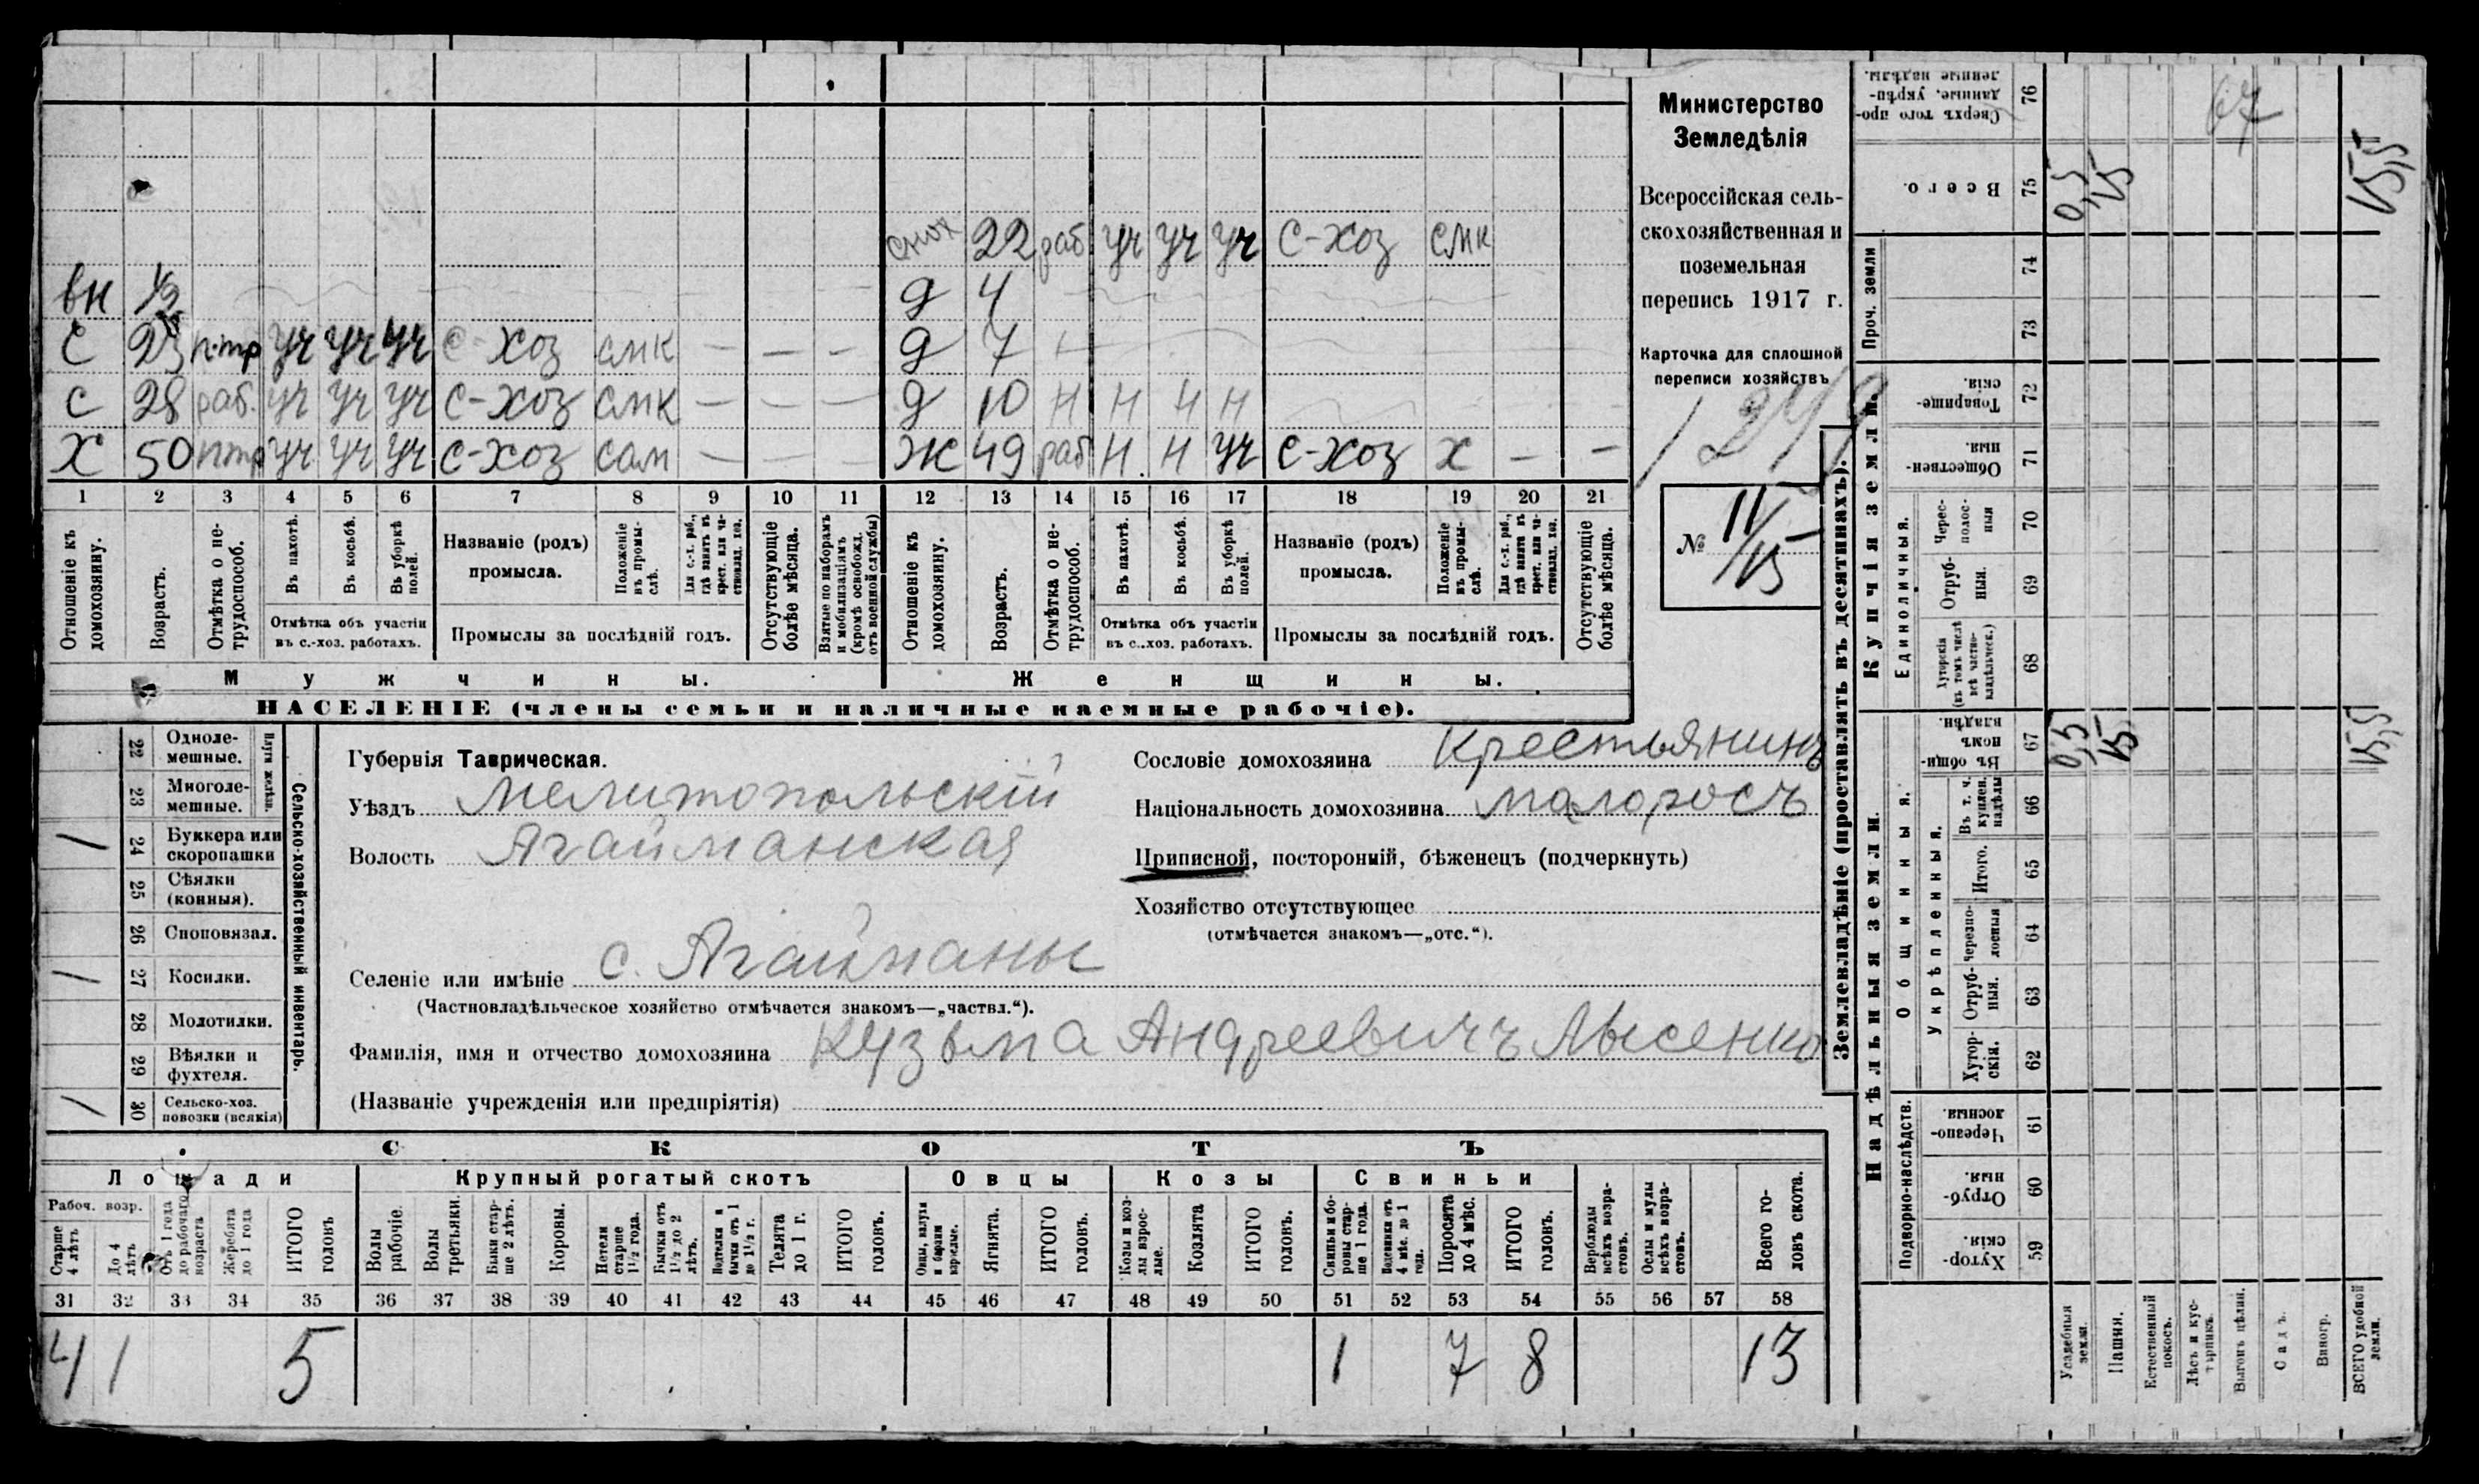 Министерство
Земледѣлія
Всероссійская сель-
скохозяйственная и
поземельная
перепись 1917 г.
Карточка для сплошной
переписи хозяйствъ
1249
№ 11/15
снох 22 раб уч уч уч с-хоз смк
вн ½ д 4
с 23 п.тр уч уч уч с-хоз смк — — — д 7
с 28 раб. уч уч уч с-хоз смк — — — д 10 н н н н
х 50 птр уч уч уч с-хоз сам — — — ж 49 раб н. н уч с-хоз х — —
1 2 3 4 5 6 7 8 9 10 11 12 13 14 15 16 17 18 19 20 21
Отношеніе къ домохозяину.
Возрастъ.
Отмѣтка о не-трудоспособ.
Въ пахотѣ.
Въ косьбѣ.
Въ уборкѣ полей.
Отмѣтка объ участіи въ с.-хоз. работахъ.
Названіе (родъ) промысла.
Положеніе въ промы-слѣ.
Для с.-х. раб., гдѣ занятъ въ крест. или ча-стновлад. хоз.
Промыслы за послѣдній годъ.
Отсутствующіе болѣе мѣсяца.
Взятые по наборамъ и мобилизаціямъ (кромѣ освобожд. отъ военной службы)
Отношеніе къ домохозяину.
Возрастъ.
Отмѣтка о не-трудоспособ.
Въ пахотѣ.
Въ косьбѣ.
Въ уборкѣ полей.
Отмѣтка объ участіи въ с..хоз. работахъ.
Названіе (родъ) промысла.
Положеніе въ промы-слѣ.
Для с.-х. раб., гдѣ занята въ крест. или ча-стновлад. хоз.
Промыслы за послѣдній годъ.
Отсутствующіе болѣе мѣсяца.
Мужчины.
Женщины.
НАСЕЛЕНІЕ (члены семьи и наличные наемные рабочіе).
Сельско-хозяйственный инвентарь.
Плуги желѣзн.
22 Одноле-мешные.
23 Многоле-мешные.
1 24 Буккера или скоропашки
25 Сѣялки (конныя).
26 Сноповязал.
1 27 Косилки.
28 Молотилки.
29 Вѣялки и фухтеля.
1 30 Сельско-хоз. повозки (всякія)
Губернія Таврическая.
Уѣздъ Мелитопольскій
Волость Агайманская
Селеніе или имѣніе с. Агайманы
(Частновладѣльческое хозяйство отмѣчается знакомъ—„частвл.“).
Фамилія, имя и отчество домохозяина Кузьма Андреевичъ Лысенко
(Названіе учрежденія или предпріятія)
Сословіе домохозяина Крестьянинъ
Національность домохозяина малоросъ
Приписной, посторонній, бѣженецъ (подчеркнуть)
Хозяйство отсутствующее
(отмѣчается знакомъ—„отс.“).
СКОТЪ
Лошади
Крупный рогатый скотъ
Овцы
Козы
Свиньи
Рабоч. возр.
Старше 4 лѣтъ
До 4 лѣтъ
Отъ 1 года до рабочаго возраста
Жеребята до 1 года
ИТОГО головъ
Волы рабочіе.
Волы третьяки.
Быки стар-ше 2 лѣтъ.
Коровы.
Нетели старше 1½ года.
Бычки отъ 1½ до 2 лѣтъ.
Подтелки и бычки отъ 1 до 1½ г.
Телята до 1 г.
ИТОГО головъ.
Овцы, валухи и бараны взрослые.
Ягнята.
ИТОГО головъ.
Козы и коз-лы взрос-лые.
Козлята
ИТОГО головъ.
Свиньи и бо-ровы стар-ше 1 года.
Подсвинки отъ 4 мѣс. до 1 года.
Поросята до 4 мѣс.
ИТОГО головъ.
Верблюды всѣхъ возра-стовъ.
Ослы и мулы всѣхъ возра-стовъ.
Всего го-ловъ скота.
31 32 33 34 35 36 37 38 39 40 41 42 43 44 45 46 47 48 49 50 51 52 53 54 55 56 57 58
4 1 5 1 7 8 13
Землевладѣніе (проставлять въ десятинахъ).
Купчія земли.
Надѣльныя земли.
Сверхъ того про-данные, укрѣп-ленные надѣлы. 76
67
Всего. 75 0,5 15 15,5
Проч. земли
74
73
Товарище-скія. 72
Обществен-ныя. 71
Единоличныя.
Черес-полос-ныя 70
Отруб-ныя. 69
Хуторскія (въ томъ числѣ всѣ частно-владѣльческ.) 68
Общинныя.
Въ общи-номъ владѣн. 67 0,5 15 15,5
Укрѣпленныя.
Въ т. ч. куплен. надѣлы 66
Итого. 65
Черезпо-лосныя 64
Отруб-ныя. 63
Хутор-скія. 62
Подворно-наслѣдств.
Черезпо-лосныя 61
Отруб-ныя. 60
Хутор-скія. 59
Усадебныя земли.
Пашня.
Естественный покосъ.
Лѣсъ и кус-тарникъ.
Выгонъ цѣлин.
Садъ.
Виногр.
ВСЕГО удобной земли.